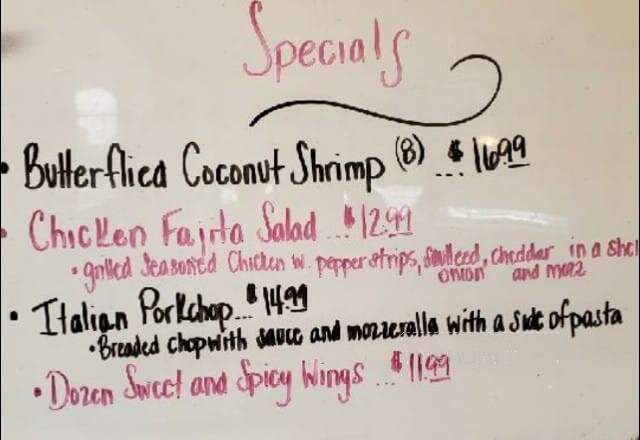 Specials
• Butterflied Coconut Shrimp (8) $ 16.99
• Chicken Fajita Salad ... $12.99
• grilled Seasoned Chicken w. pepper strips, sauteed onion, cheddar and mozz in a shel
• Italian Porkchop... $14.99
• Breaded chop with sauce and mozzeralla with a side of pasta
• Dozen Sweet and Spicy Wings ... $11.99